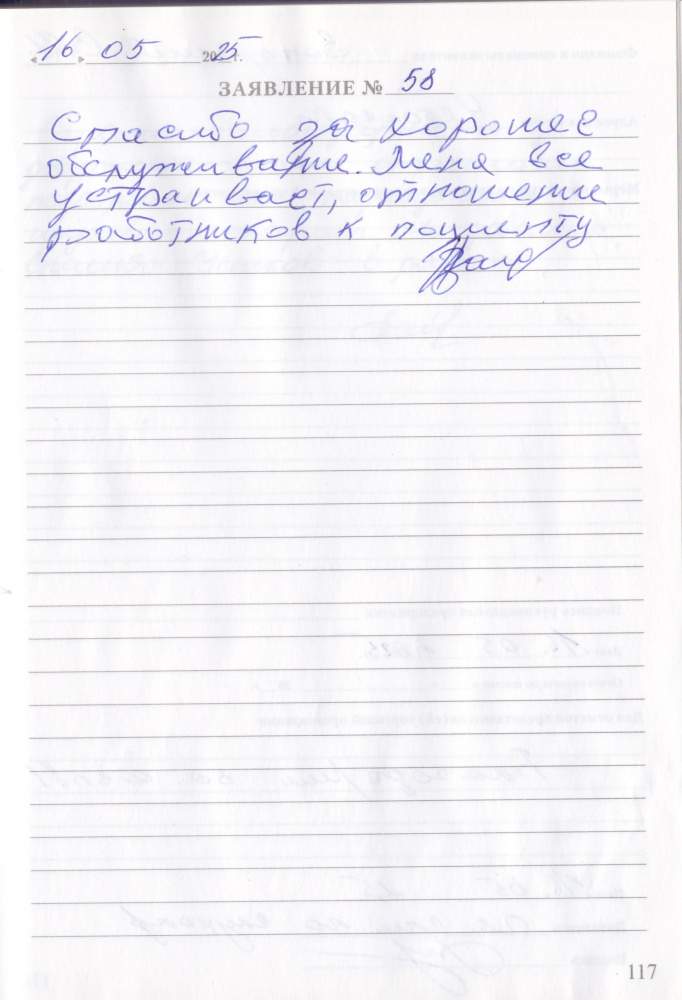 «16» 05 2025 г.
ЗАЯВЛЕНИЕ № 58
Спасибо за хорошее
обслуживание. Меня все
устраивает, отношение
работников к пациенту
117